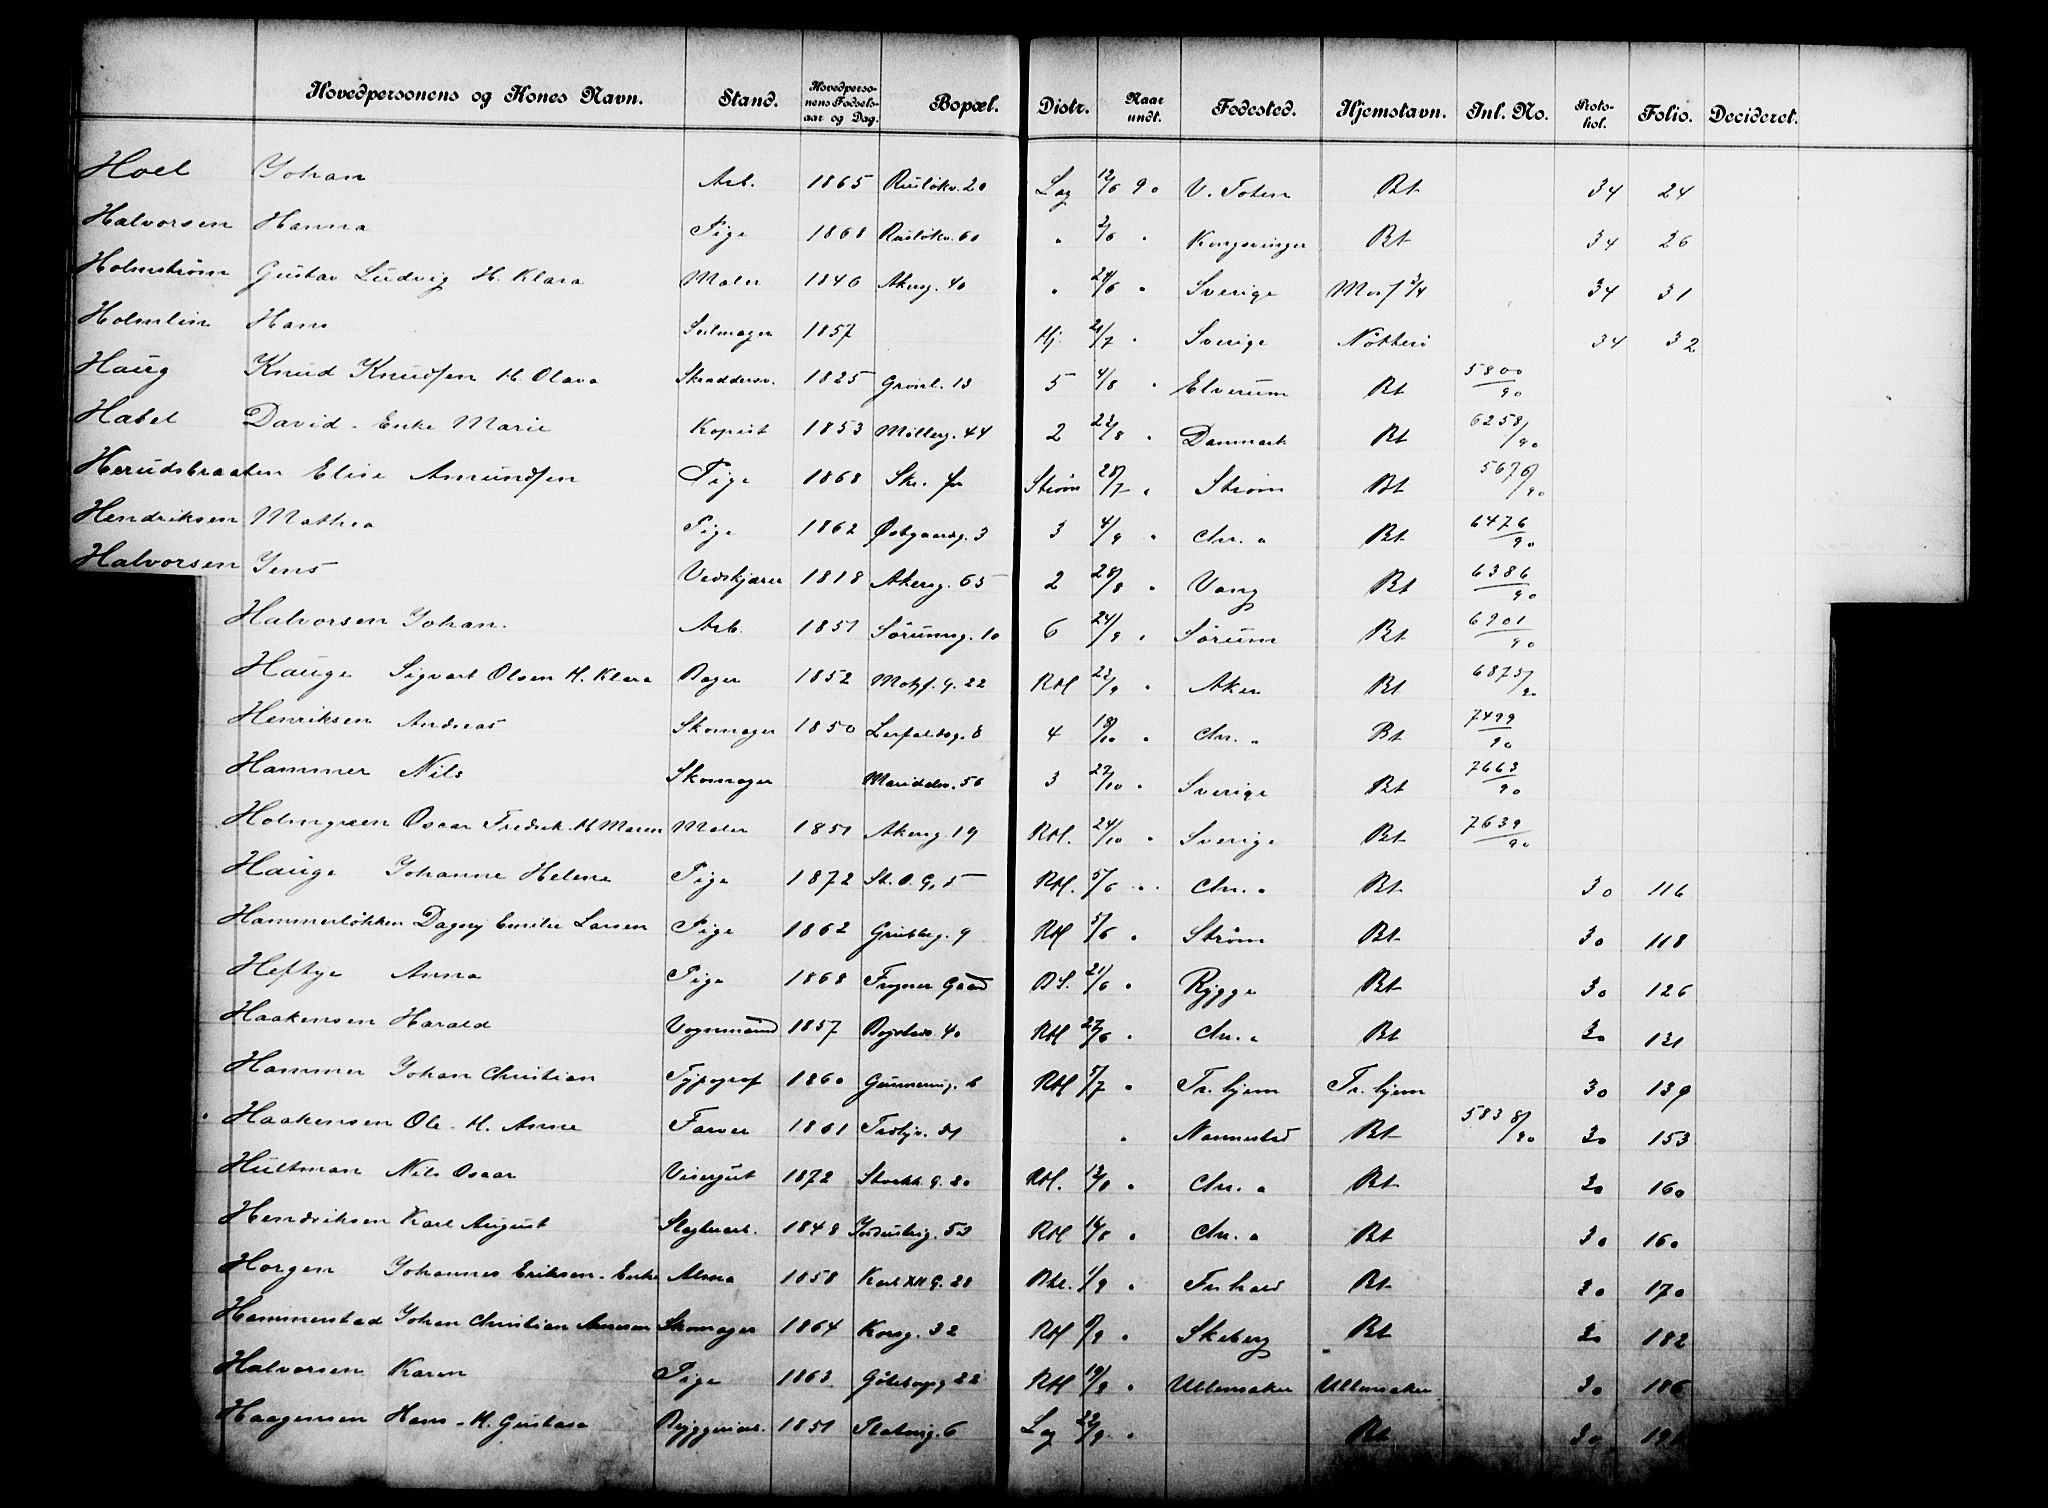 Hovedpersonens og Kones Navn. Stand. Hovedpersonens Fødselsaar og Dag. Bopæl. Distr. Naar undt. Fødested. Hjemstavn. Inl. No. Protokol. Folio. Decideret.
Hoel Johan Arb. 1865 Ruseløkv. 20 Lag 12/6 90 V. Toten Bt 34 24
Halvorsen Hanna Pige 1868 Ruseløkv. 60 " 2/6 " Kongsvinger Bt 34 26
Holmstrøm Gustav Ludvig H. Klara Maler 1846 Akersg. 40 " 24/6 " Sverige 34 31
Hans Seilmager 1857 Hj. 21/7 " Sverige Nötterö 34 32
Haug Knud Knudsen H. Olava Skreddersv. 1825 5 4/8 " Elverum Bt 5800/90
Habel David - Enke Marie Kopist 1853 Möllerg. 44 2 22/8 " Danmark Bt 6258/90
Herudsbraaten Elise Amundsen Pige 1868 Strøm 28/7 " Strøm Bt 5676/90
Hendriksen Mathea Pige 1862 Østgaardsg. 3 3 4/9 " Chr. a Bt 6476/90
Halvorsen Jens Vedskjærer 1818 Akersg. 65 2 28/8 " Vang Bt 6386/90
Halvorsen Johan. Arb. 1851 Sørumsg. 10 6 24/9 " Sørum Bt 6901/90
Hauge Sigvart Olsen H. Klara Bager 1852 Motzf. G. 22 RH 22/9 " Aker Bt 6875/90
Henriksen Andreas Skomager 1850 Lerfaldsg. 8 4 18/10 " Chr. a Bt 7499/90
Hammer Nils Skomager Maridalsv. 56 3 27/10 " Sverige Bt 7663/90
Holmgreen Oscar Fredrik H Maren Maler 1851 Akersg. 19 RH. 24/10 " Sverige Bt 7639/90
Hauge Johanne Helene Pige 1872 St. O. G. 5 RH. 5/6 " Chr. a Bt 30 116
Hammerløkken Dagny Emilie Larsen Pige 1862 Grubbeg. 9 RH 5/6 " Strøm Bt 30 118
Heftye Anna Pige 1868 Frogner Gaard 21/6 " Rygge Bt 30 126
Haakensen Harald Vognmand 1857 Bogstadv. 40 RH 27/6 " Chr. a Bt 30 131
Hammer Johan Christian Typograf 1860 Gunnerusg. 6 RH 5/7 " Tr. hjem Tr. hjem 30 139
Haakensen Ole - H. Anne Farver 1861 " Nannestad Bt 5838/90 30 153
Hultman Nils Oscar Visergut 1872 Storkk. G. 20 RH. 13/8 " Chr. a Bt 30 160
Hendriksen Karl August Slagterarb. 1848 Industrig. 53 RH 14/8 " Chr. a Bt 30 160
Horgen Johannes Eriksen - Enke Alma 1858 Karl XII G. 28 1/9 " Fr. hald Bt 30 170
Hammerstad Johan Christian Arnesen Skomager 1864 Korsg. 32 RH " Skeberg Bt 30 182
Halvorsen Karen Pige 1863 Göteborgg 22 RH 19/9 " Ullensaker Ullensaker 30 186
Haagensen Hans - H. Gustava Bryggeriarb. 1851 Platoug. 6 Lag 22/9 " Bt 30